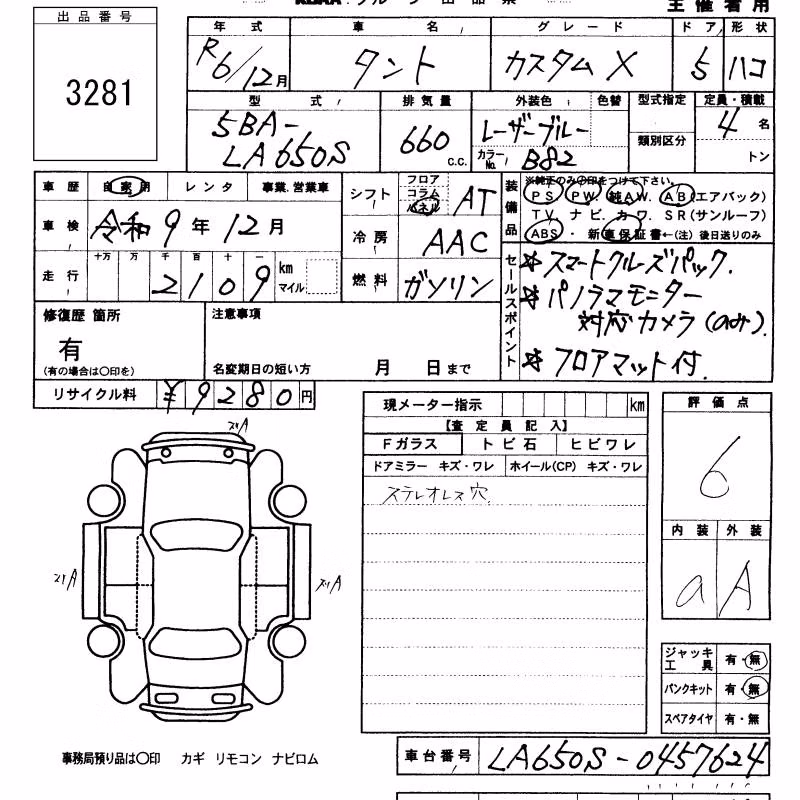 出品番号
3281
主催者用
年式 車名 グレード ドア 形状
R6/12月 タント カスタムX 5 ハコ
型式 排気量 外装色 色替 型式指定 定員・積載
5BA-
LA650S 660 c.c. レーザーブルー 4名
カラーNo. B82 類別区分 トン
車歴 自家用 レンタ 事業.営業車
シフト フロア コラム AT
装備品 ※純正のみ〇印をつけて下さい。
PS PW. 純AW. AB(エアバック)
TV. ナビ. カワ. SR(サンルーフ)
ABS・新車保証書←(注)後日送りのみ
車検 令和9年12月
冷房 AAC
走行 十万 万 千 百 十 一
2109 km マイル
燃料 ガソリン
セールスポイント
☆スマートクルーズパック.
☆パノラマモニター
対応カメラ(のみ).
☆フロアマット付.
修復歴 箇所
有
(有の場合は〇印を)
注意事項
名変期日の短い方 月 日まで
リサイクル料 ¥9280円
現メーター指示 km
【査定員記入】
Fガラス トビ石 ヒビワレ
ドアミラー キズ・ワレ ホイール(CP) キズ・ワレ
ステレオレス穴
評価点
6
内装 外装
a A
ズリA
ズリA
ズリA
ジャッキ工具 有・無
パンクキット 有・無
スペアタイヤ 有・無
事務局預り品は〇印 カギ リモコン ナビロム
車台番号 LA650S-0457624